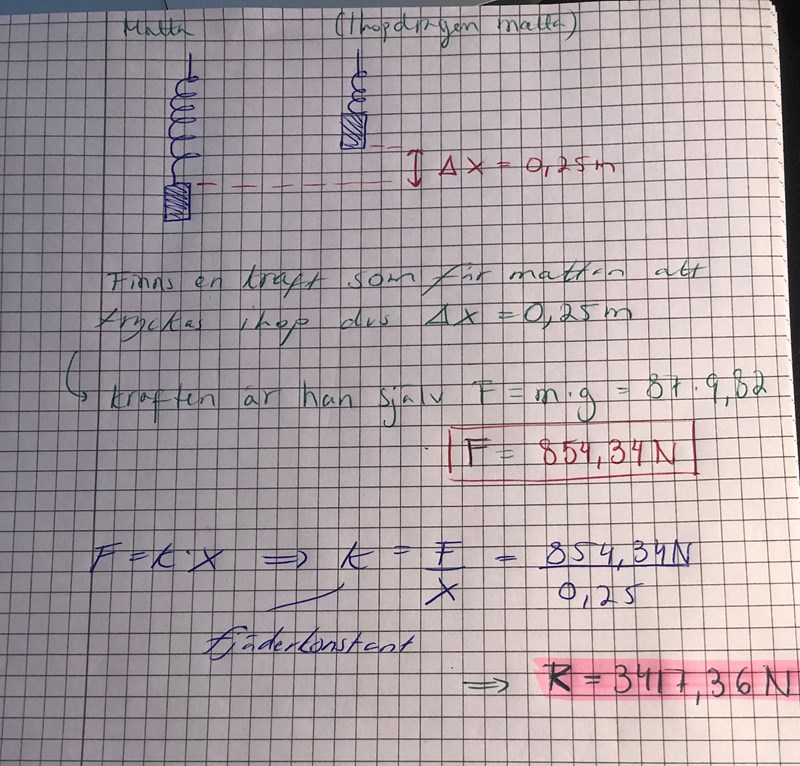 Matta (Ihopdragen matta)
Δx = 0,25m
Finns en kraft som får mattan att
tryckas ihop dvs Δx = 0,25m
kraften är han själv F = m·g = 87·9,82
F = 854,34N
F = k·x ⇒ k = F/x = 854,34N/0,25
fjäderkonstant
⇒ K = 3417,36 N